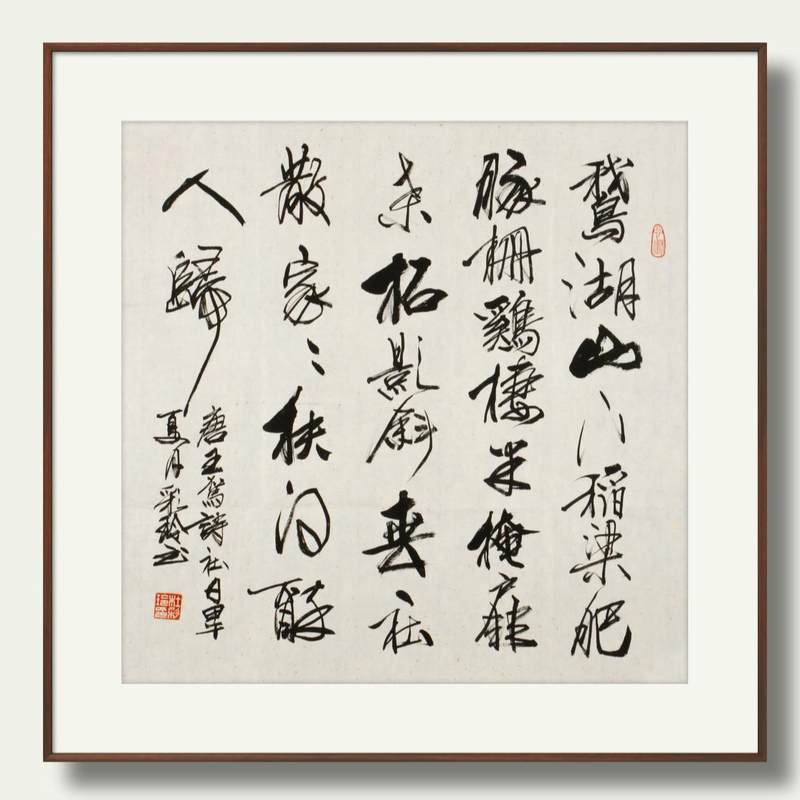 鵞湖山下稻梁肥
豚栅鷄棲半掩扉
桑柘影斜春社
散家〻扶得醉
人歸
唐王駕詩社日
夏月彩玲书